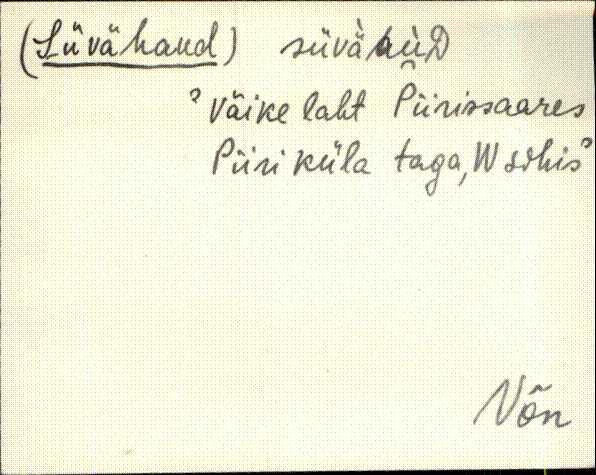 (Süvähaud) süvähàùD
"Väike laht Piirissaares
Piiri küla taga, W sihis"
Nõn